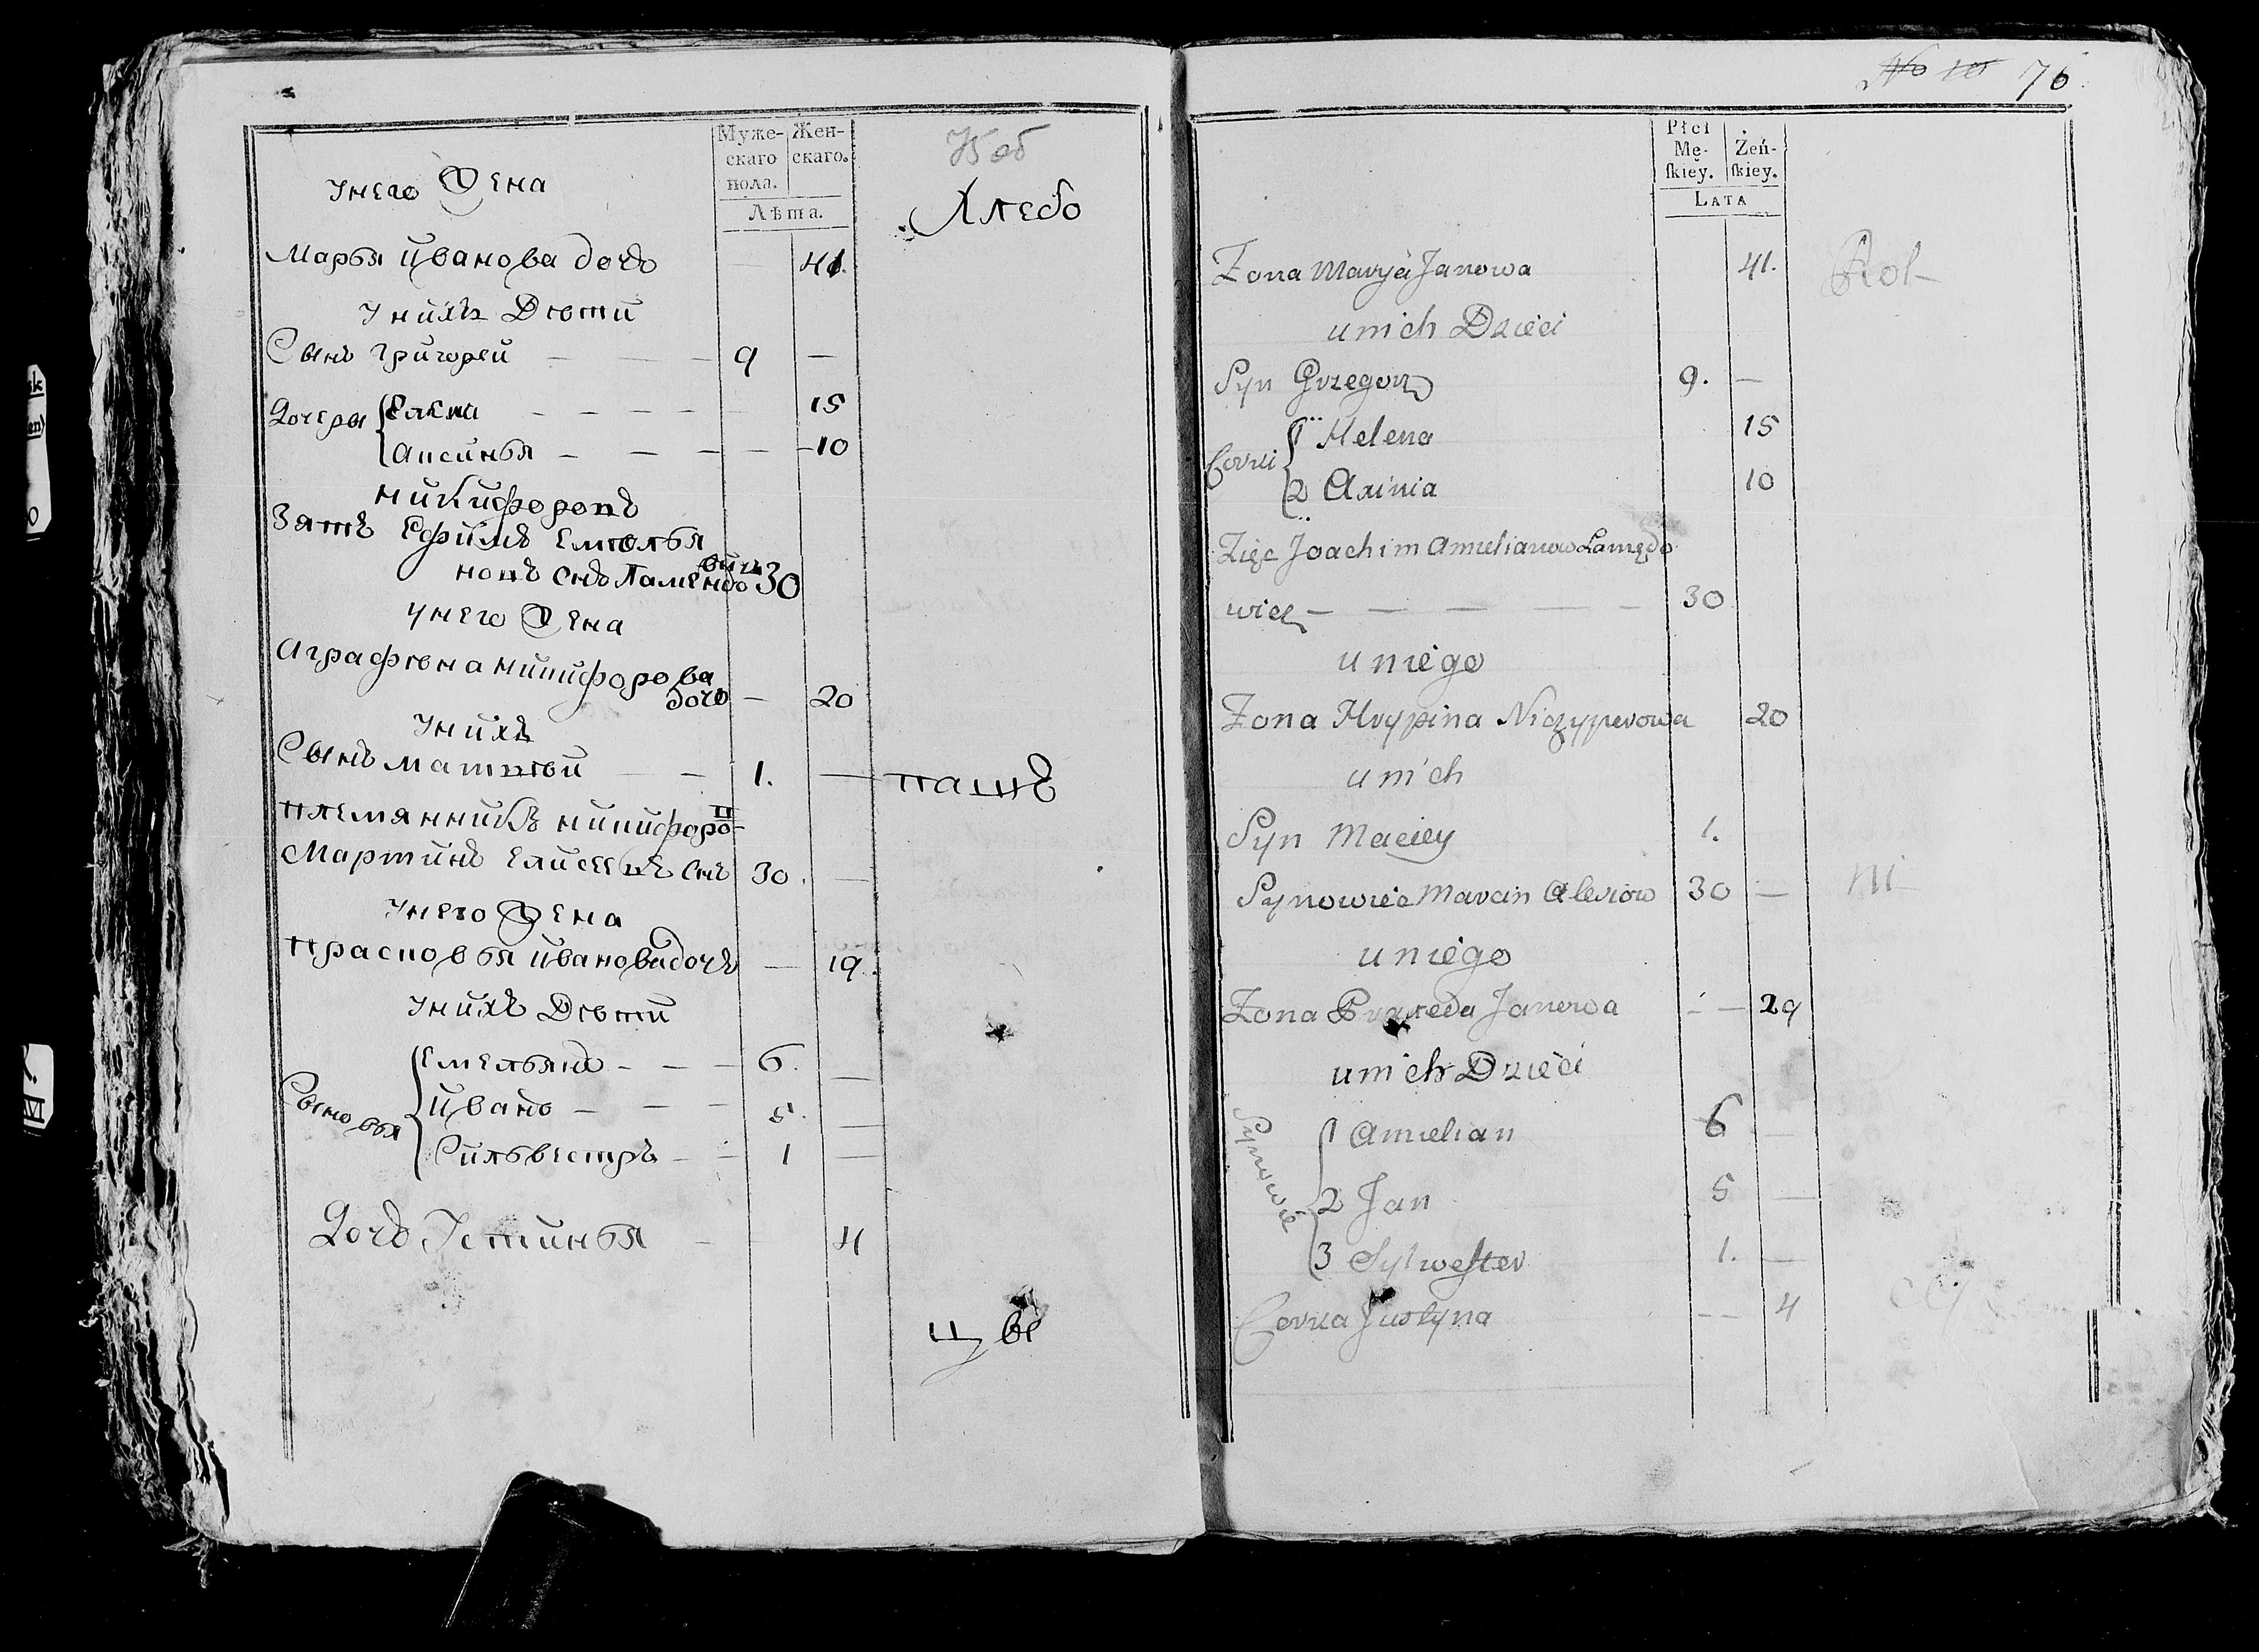 Муже-
скаго
пола.
Жен-
скаго.
Лѣта.
75 об
Хлебо
Унего Жена
Марья Иванова дочь 41.
Унихъ Дѣти
Сынъ Григорей — — — 9 —
Дочеры Елена — — — — 15
Аксинья — — — — — 10
Никифоровъ
Зять Ефимъ Емелья
новъ снъ Ламендо 30
вичь
Унего Жена
Аграфѣна Никифорова
дочь — 20
Унихъ
Сынъ Матвѣй — — 1. — пашъ
Племянникъ Никифоро
в
Мартинъ Елисеевъ снъ 30. —
Унего Жена
Прасковья Иванова дочь — 19.
Унихъ Дѣти
Сыновья
Емельянъ — — — 6. —
Иванъ — — — 5. —
Сильвестръ — — 1 —
Дочь Устинья — 4
цы
No 10 76
Płci
Mę-
skiey.
Żeń-
skiey.
LATA
Żona Maryja Janowa 41. Rol
u nich Dzieci
Syn Grzegorz 9. —
Corki
1 Helena 15
2 Axinia 10
Zięc Joachim Amelianow Lamędo
wicz — — — — — 30
u niego
Żona Hrypina Niczyperowa 20
u nich
Syn Maciey 1.
Synowiec Marcin Alexiow 30 — ni
u niego
Żona Praxeda Janowa — — 29
u nich Dzieci
Synowie
1 Amelian 6 —
2 Jan 5 —
3 Sylwester 1. —
Corka Justyna — 4